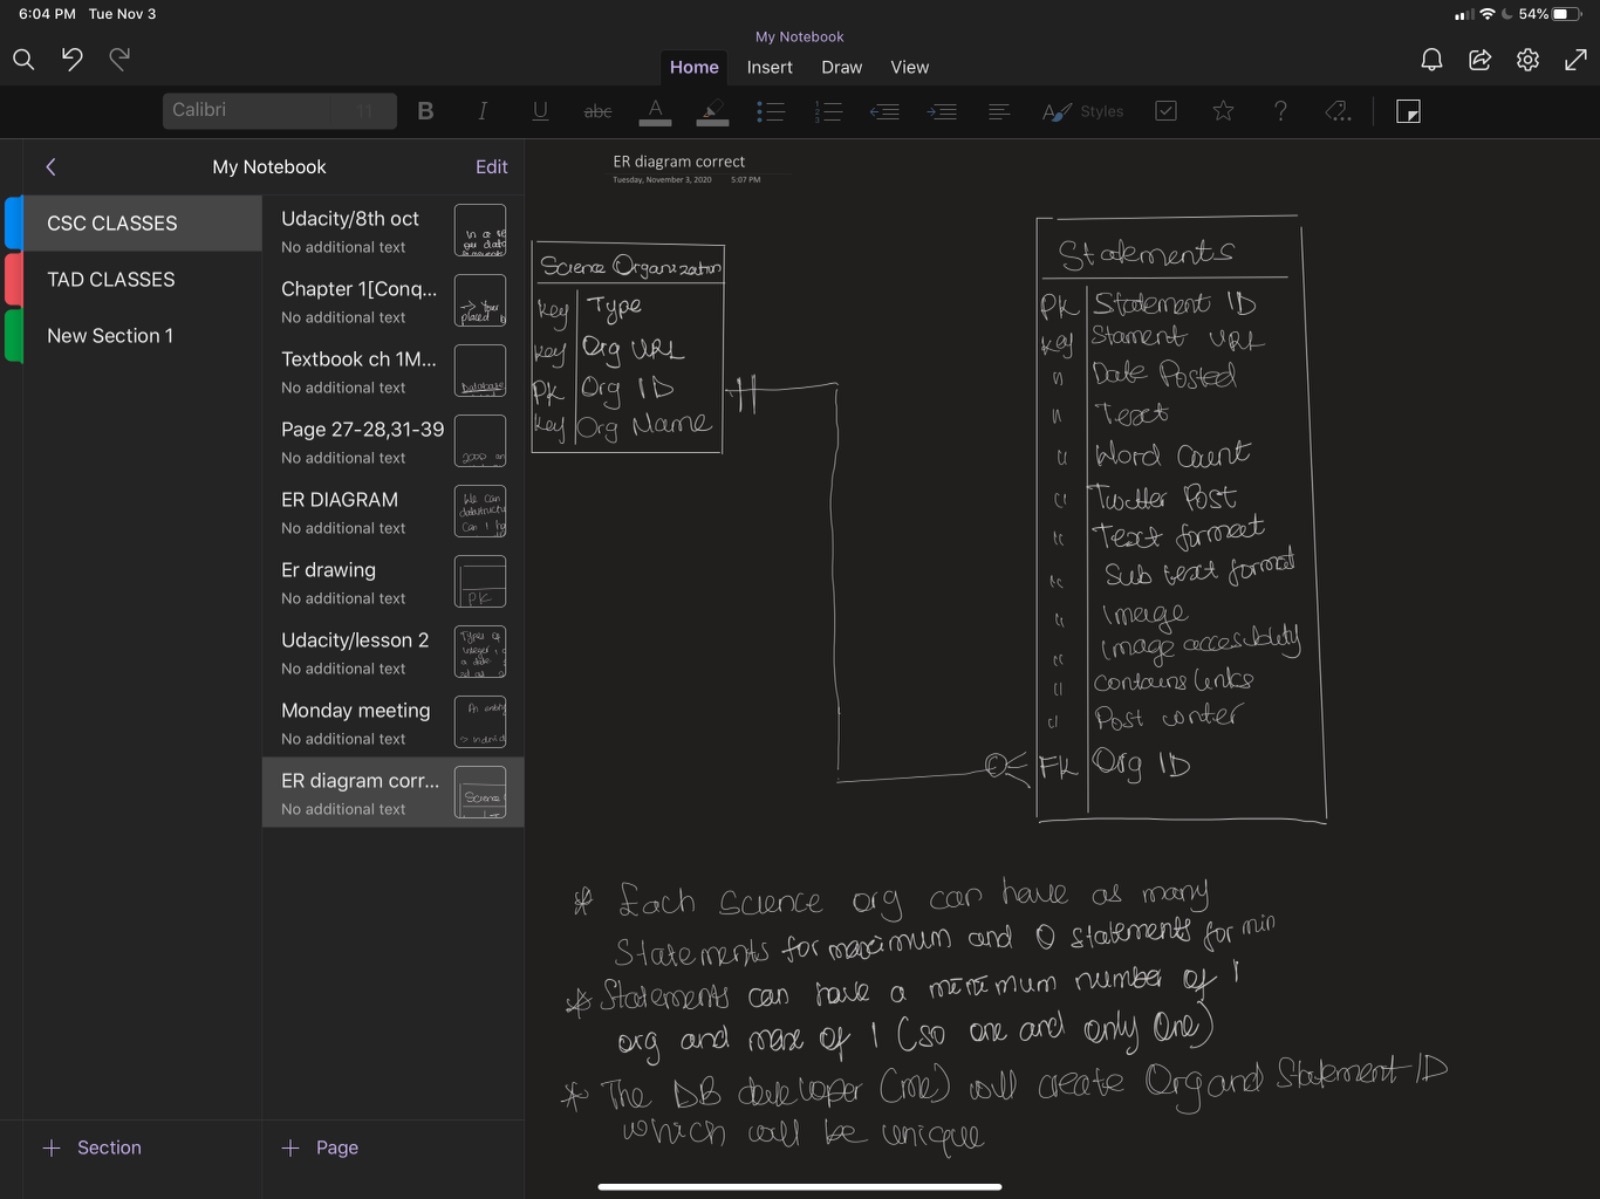 6:04 PM Tue Nov 3
54%
My Notebook
Home Insert Draw View
Calibri 11 B I U abc A Styles
My Notebook Edit
CSC CLASSES
TAD CLASSES
New Section 1
Udacity/8th oct
No additional text
Chapter 1[Conq...
No additional text
Textbook ch 1M...
No additional text
Page 27-28,31-39
No additional text
ER DIAGRAM
No additional text
Er drawing
No additional text
PK
Udacity/lesson 2
No additional text
Monday meeting
No additional text
ER diagram corr...
No additional text
Science
+ Section
+ Page
ER diagram correct
Tuesday, November 3, 2020 5:07 PM
Science Organization
key Type
key Org URL
PK Org ID
key Org Name
Statements
PK Statement ID
key Stament URL
" Date Posted
" Text
" Word Count
" Twitter Post
" Text format
" Sub text format
" Image
" Image accesibility
" contains links
" Post
FK Org ID
* Each science org can have as many
Statements for maximum and 0 statements for min
* Statements can have a minimum number of 1
org and max of 1 (so one and only One)
* The DB developer (me) will create Org and Statement ID
which will be unique